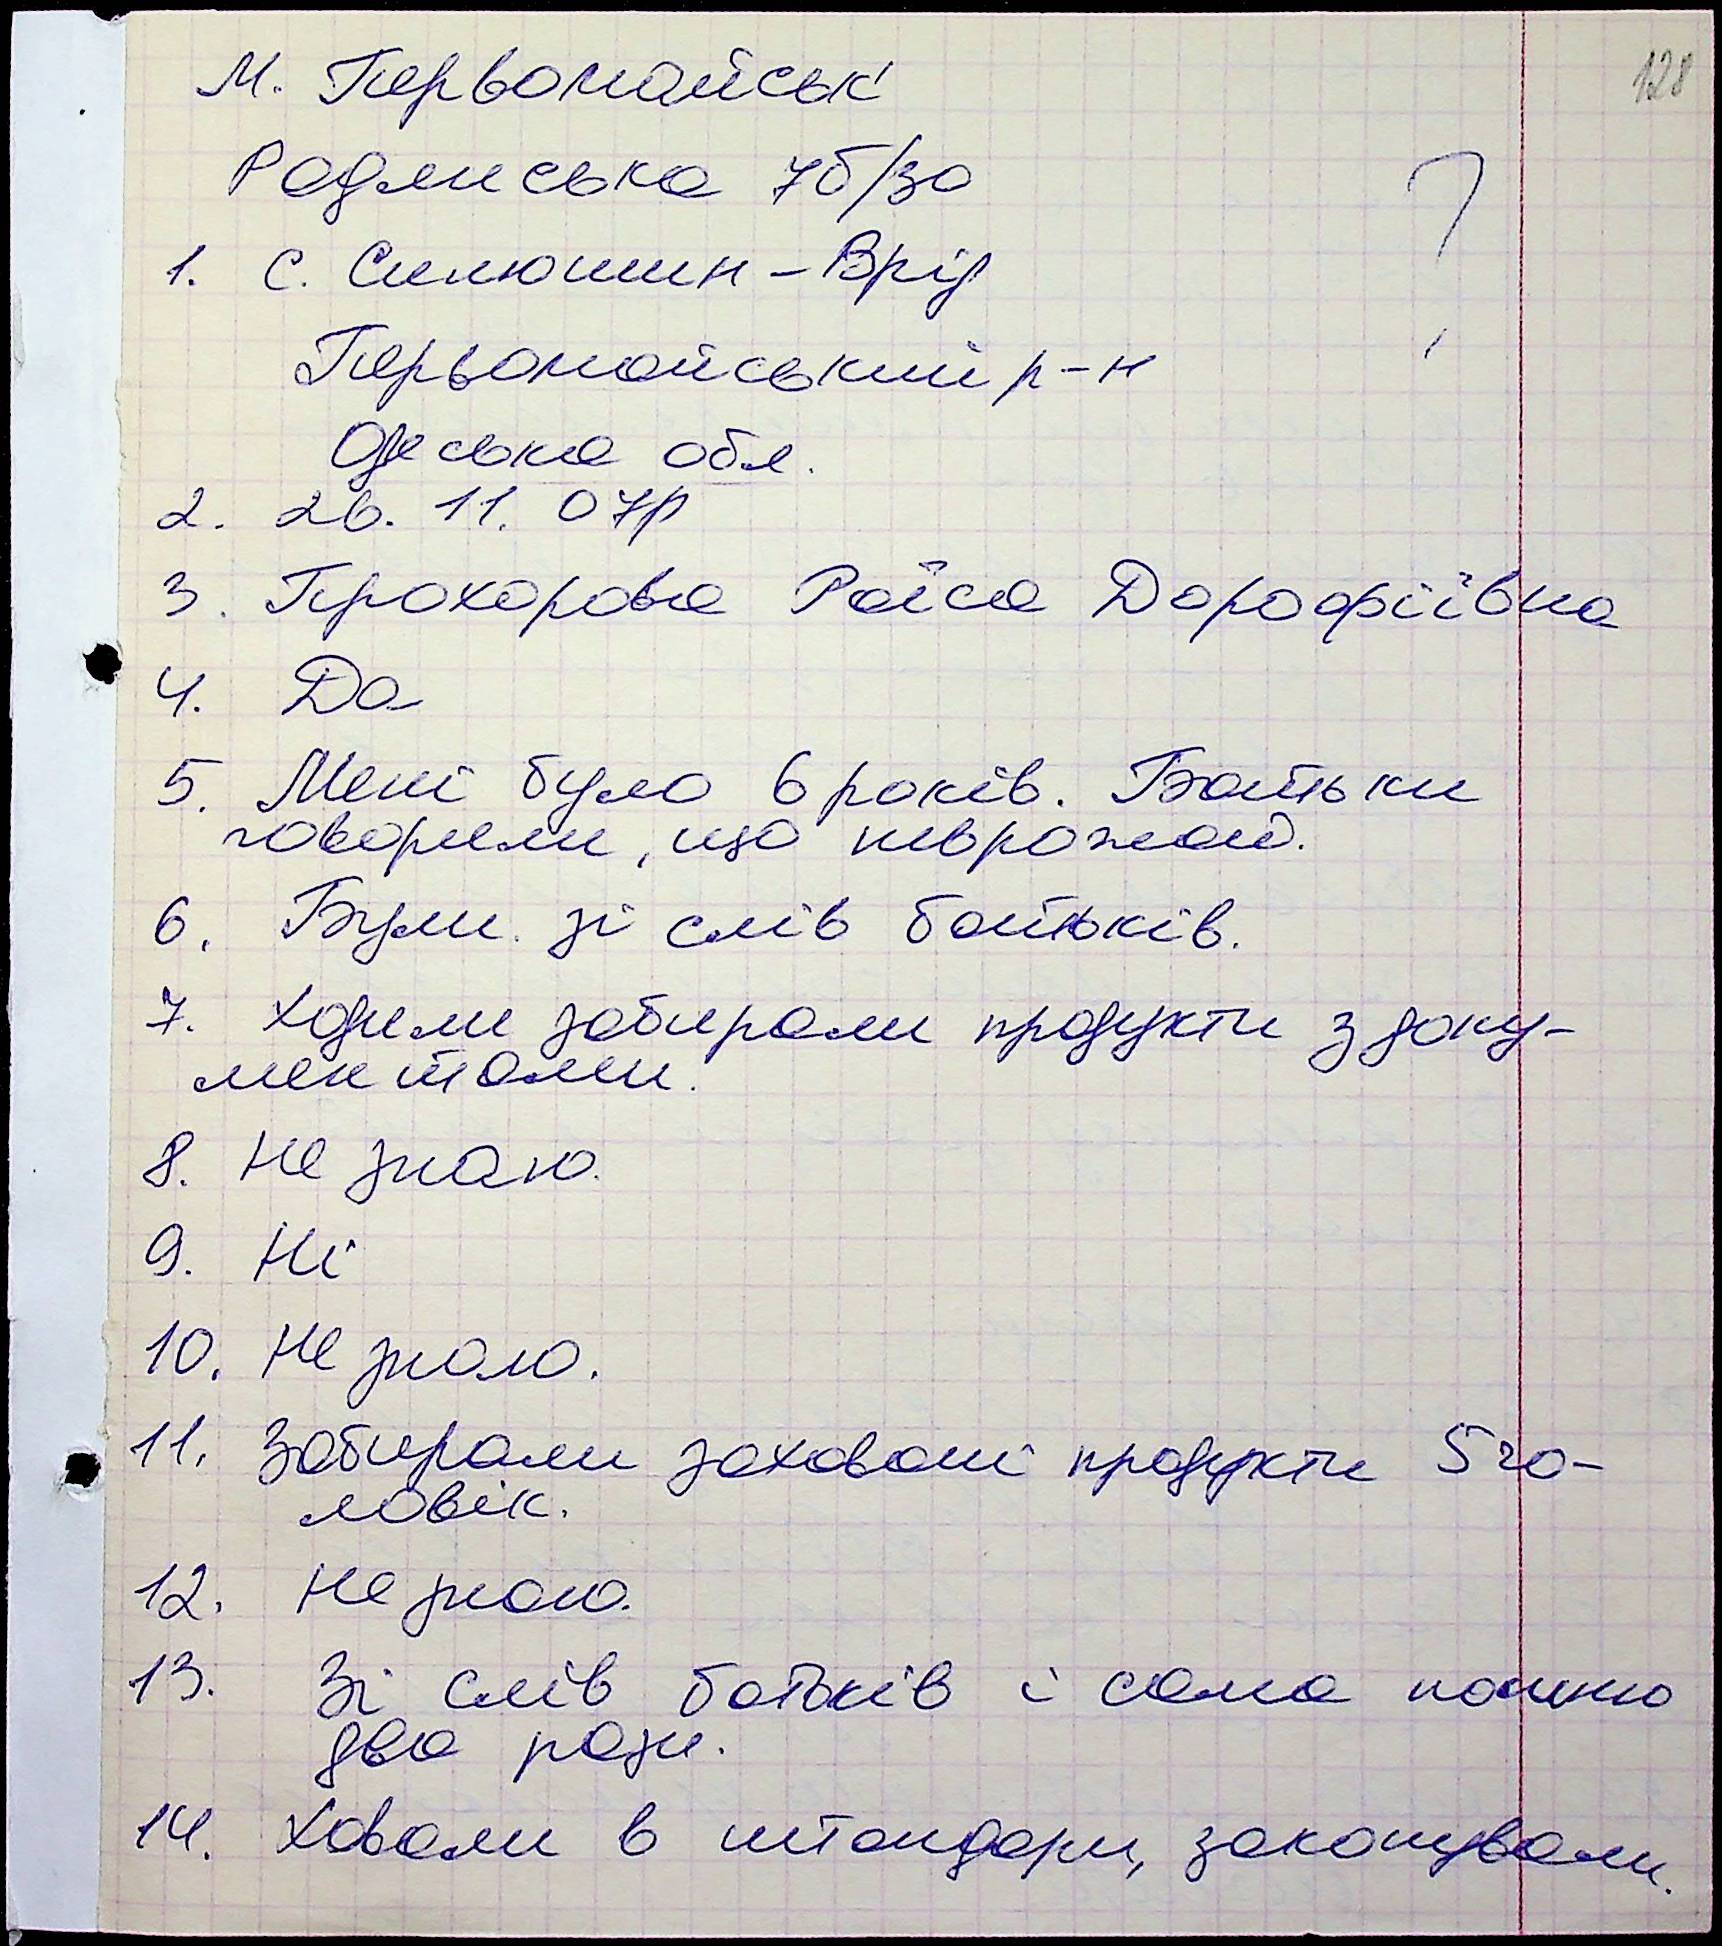 128
М. Первомайськ
Радянська 7б/30
1. С. Синюшин-Брід
Первомайський р-н
Одеська обл.
?
2. 26. 11. 07р
3. Прохорова Раїса Дорофіївна
4. Да
5. Мені було 6 років. Батьки
говорили, що неврожай.
6. Були. зі слів батьків.
7. Ходили забирали продукти з доку-
ментами.
8. Не знаю.
9. Ні
10. Не знаю.
11. Забирали заховані продукти 5 чо-
ловік.
12. Не знаю.
13. Зі слів батьків і сама помню
два рази.
14. Ховали в штандари, закопували.